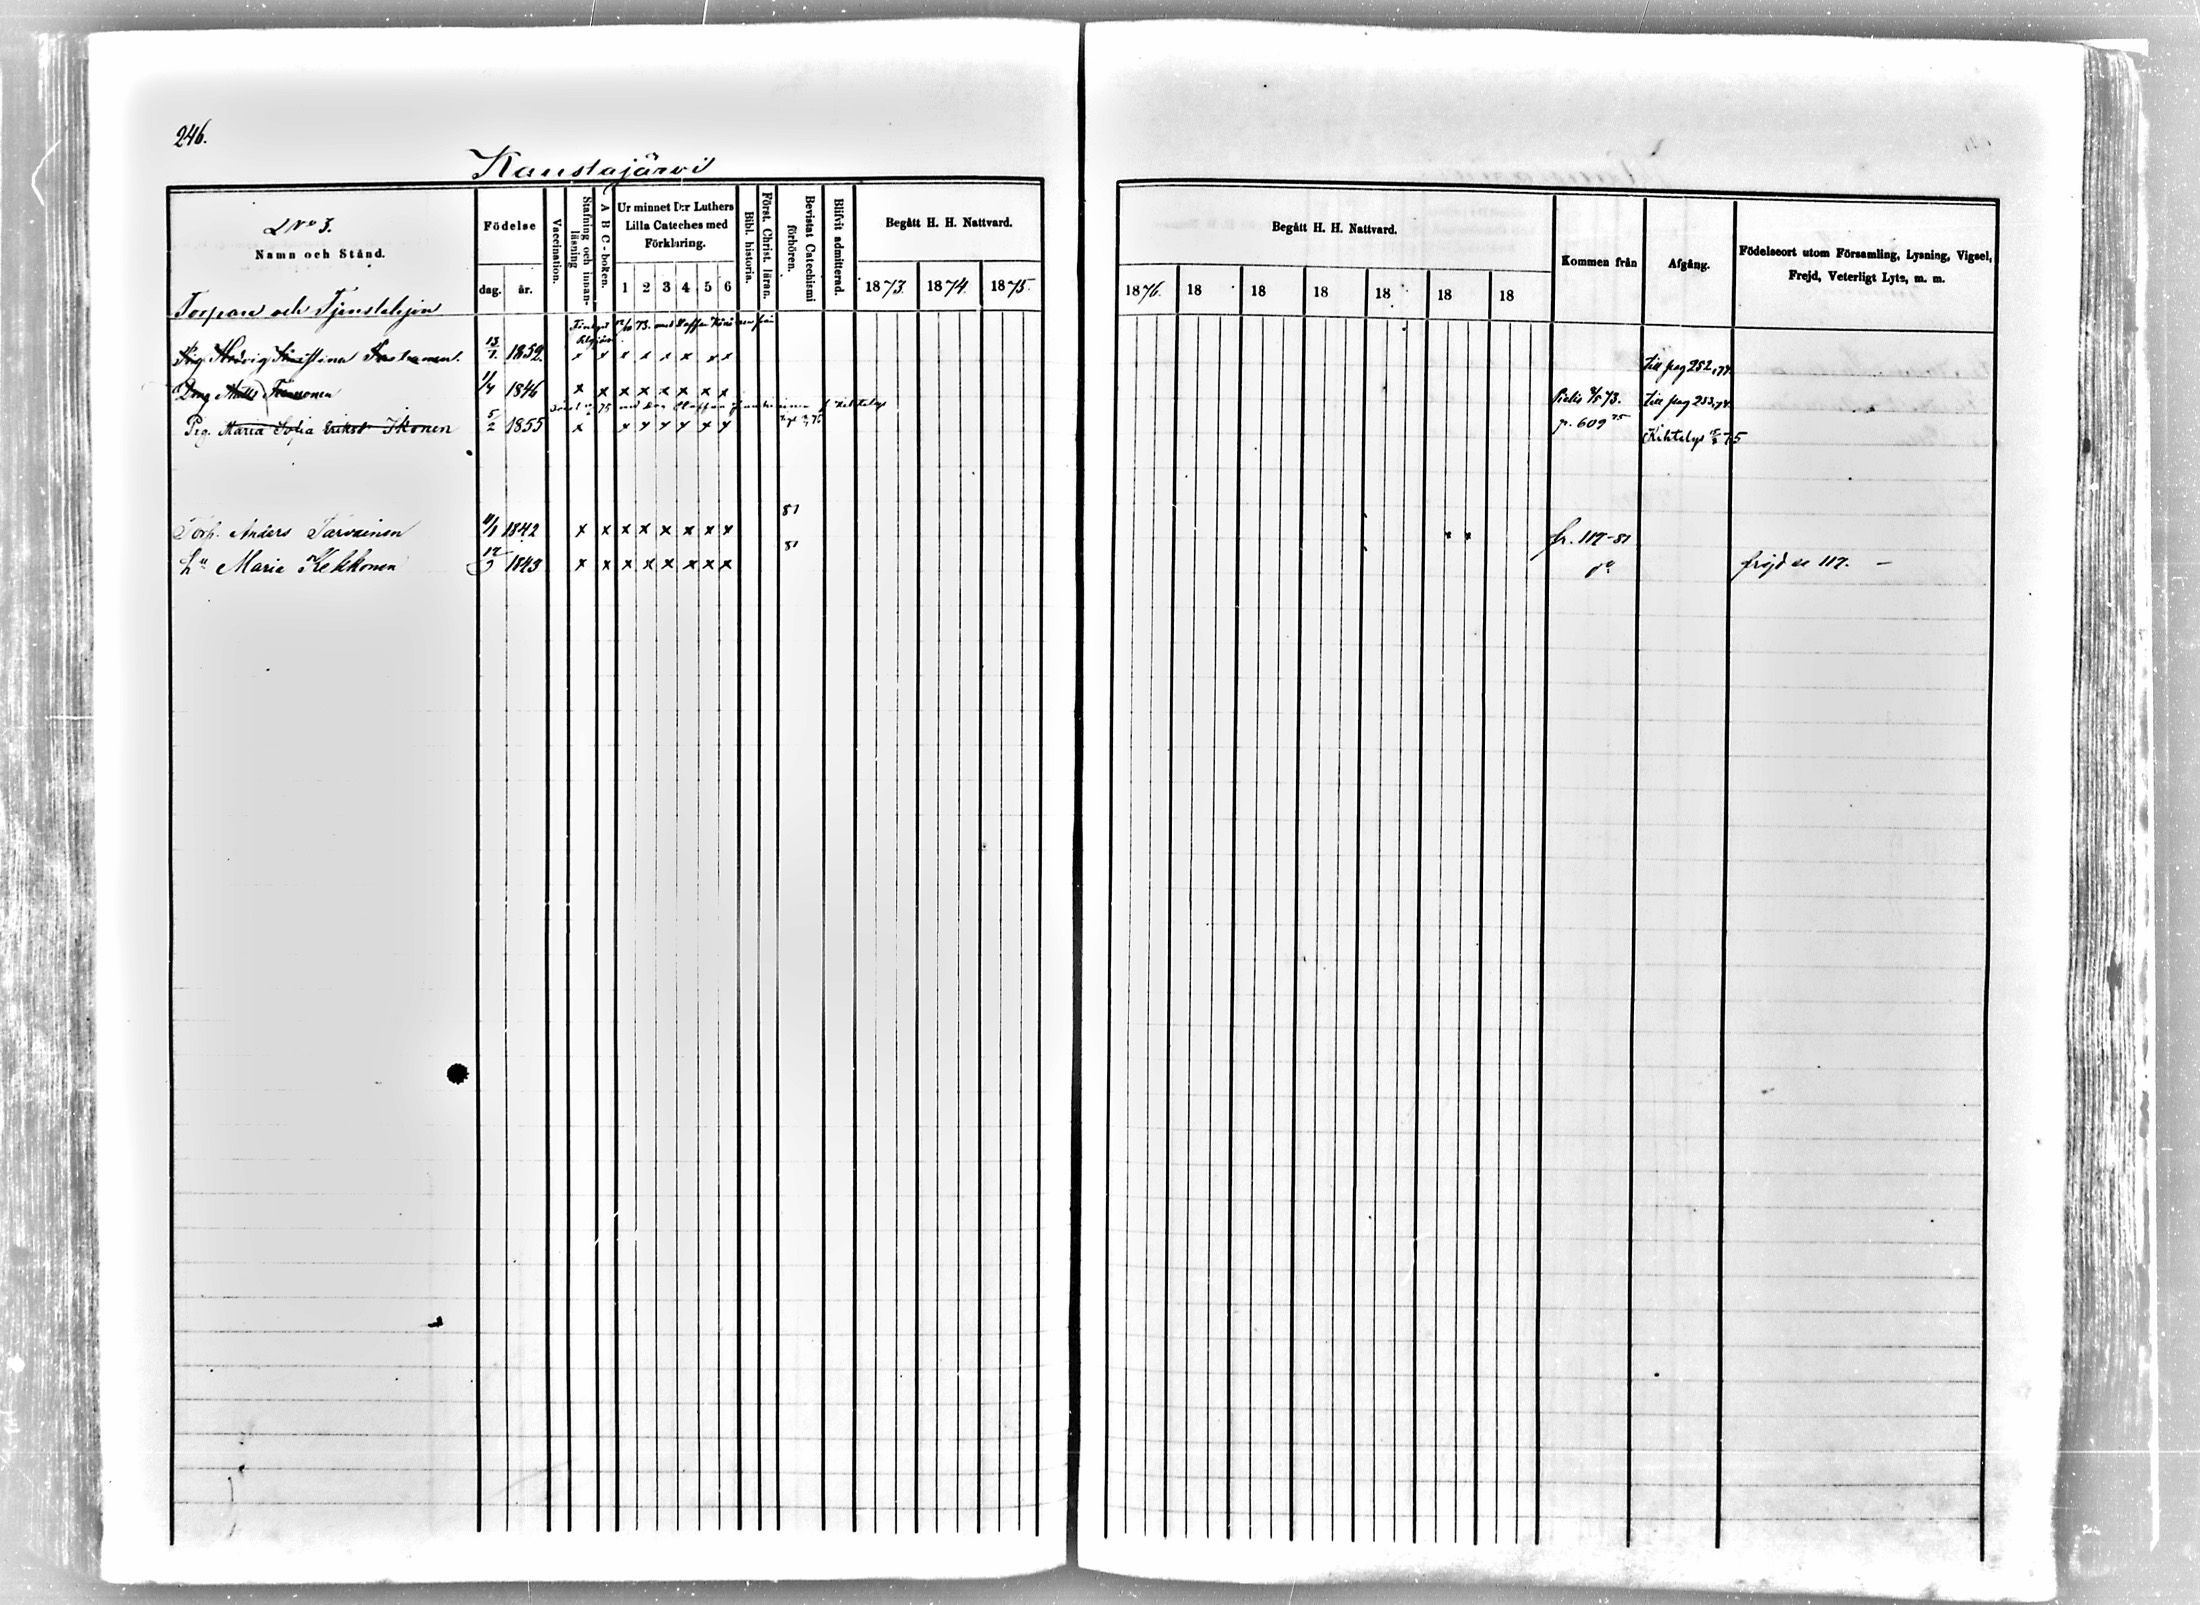 246.
Kanstajärvi
LNo 3.
Namn och Stånd.
Födelse
dag. år.
Vaccination.
Stafning och innan-läsning
A B C-boken.
Ur minnet D:r Luthers
Lilla Cateches med
Förklaring.
1 2 3 4 5 6
Bibl. historia.
Först. Christ. läran.
Bevistat Catechismi förhören.
Blifvit admitterad.
Begått H. H. Nattvard.
1873. 1874. 1875.
Begått H. H. Nattvard.
1876. 18 18 18 18 18 18
Kommen från
Afgång.
Födelseort utom Församling, Lysning, Vigsel,
Frejd, Veterligt Lyte, m. m.
Torpare och Tjenstehjon
Pig. Hedvig Kristina 13/7. 1852. x x x x x x x x till pag 252,77.
Dräng Matts 11/4 1846 x x x x x x x x Pielis 73. till pag 253,74.
Pig. Maria Sofia Eriksd. Ikonen 5/2 1855 x x x x x x x p. 609 75 Kihtelys 75
Torp. Anders Tarvainen 1842 x x x x x x x x 81 x x fr. 117-81
H:u Maria Kekkonen 1843 x x x x x x x x 81 d:o frejd se 117. -